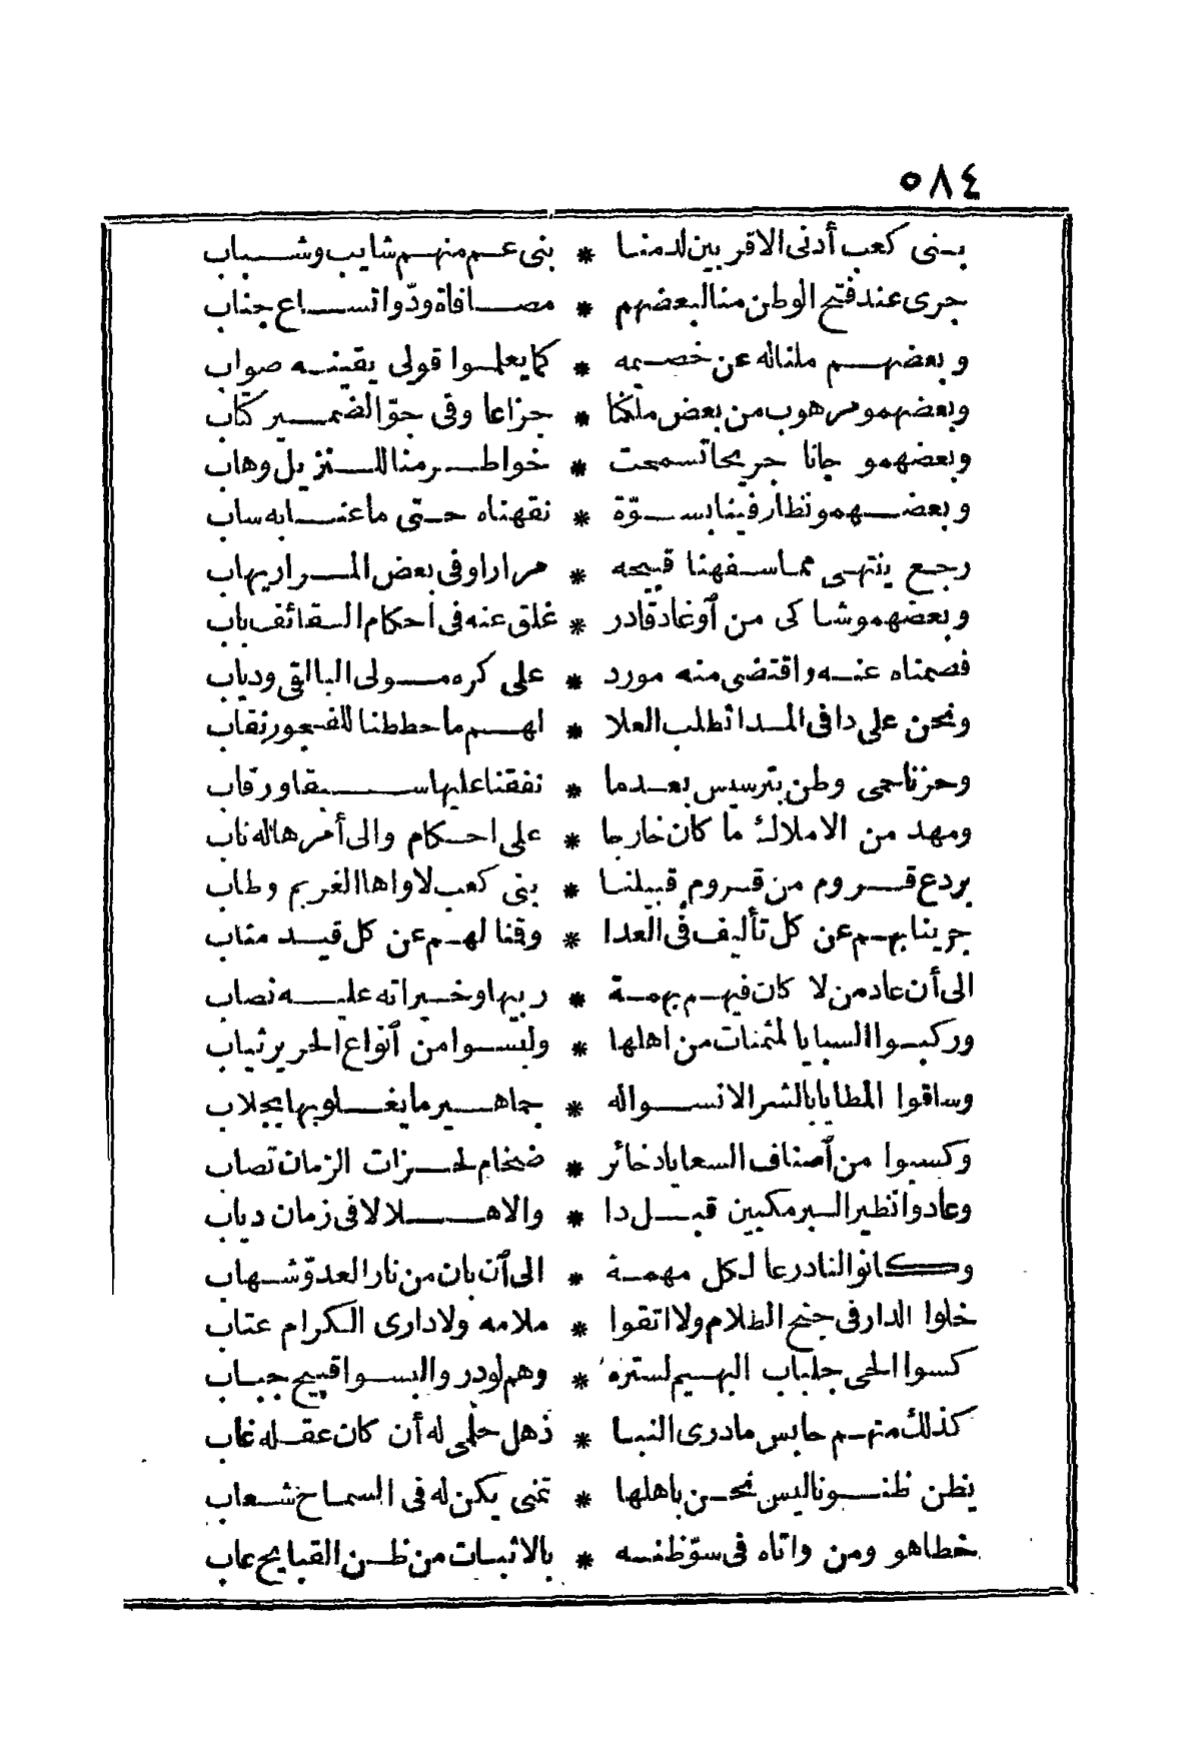 ٥٨٤
بنى كعب أدنى الاقربين لدمنا * بنى عم منهم شايب وشباب
جرى عند فتح الوطن منا لبعضهم * مصافاة ودّ واتساع جناب
وبعضهم ملناله عن خصيمه * كما يعلموا قولى يقينه صواب
وبعضهمو مرهوب من بعض ملكنا * جزاعا وفى جوّ الضمير كتاب
وبعضهمو جانا جريحا تسمحت * خواطر منا للنزيل وهاب
وبعضهمو نظار فينا بسوّة * نقهناه حتى ماعنا به ساب
رجع ينتهى مما سفهنا قبيحه * مرارا وفى بعض المرار يهاب
وبعضهمو شاكى من أوغاد قادر * غلق عنه فى أحكام السقائف باب
فصمناه عنه واقتضى منه مورد * على كره مولى البالقى ودياب
ونحن على دا فى المدا نطلب العلا * لهم ما حططنا للفجور نقاب
وحزنا حمى وطن بترسيس بعدما * نفقنا عليها سبقا ورقاب
ومهد من الاملاك ما كان خارجا * على احكام والى أمرها له ناب
بردع قروم من قروم قبيلنا * بنى كعب لاواها الغريم وطاب
جرينا بهم عن كل تأليف فى العدا * وقنا لهم عن كل قيد مناب
الى أن عاد من لا كان فيهم بهمة * ربيها وخيراته عليه نصاب
وركبوا السبايا المثمنات من اهلها * ولبسوا من أنواع الحرير ثياب
وساقوا المطايا بالشرا لانسواله * جماهير ما يغلو بها بجلاب
وكسبوا من أصناف السعايا ذخائر * ضخام لحزات الزمان تصاب
وعادوا نظير البرمكيين قبل دا * والا هلالا فى زمان دياب
وكانوا لنا درعا لكل مهمة * الى أن بان من نار العدوّ شهاب
خلوا الدار فى جنح الظلام ولا اتقوا * ملامه ولا دارى الكرام عتاب
كسوا الحى جلباب البهيم لستره * وهم لو دروا لبسوا قبيح جباب
كذلك منهم حابس ما درى النبا * ذهل حلمى له أن كان عقله غاب
يظن ظنونا ليس نحن باهلها * تمنى يكن له فى السماح شعاب
خطا هو ومن واتاه فى سوّ ظنه * بالاثبات من ظن القبايح عاب